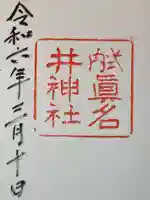 眞名
井神社
令和六年三月十日